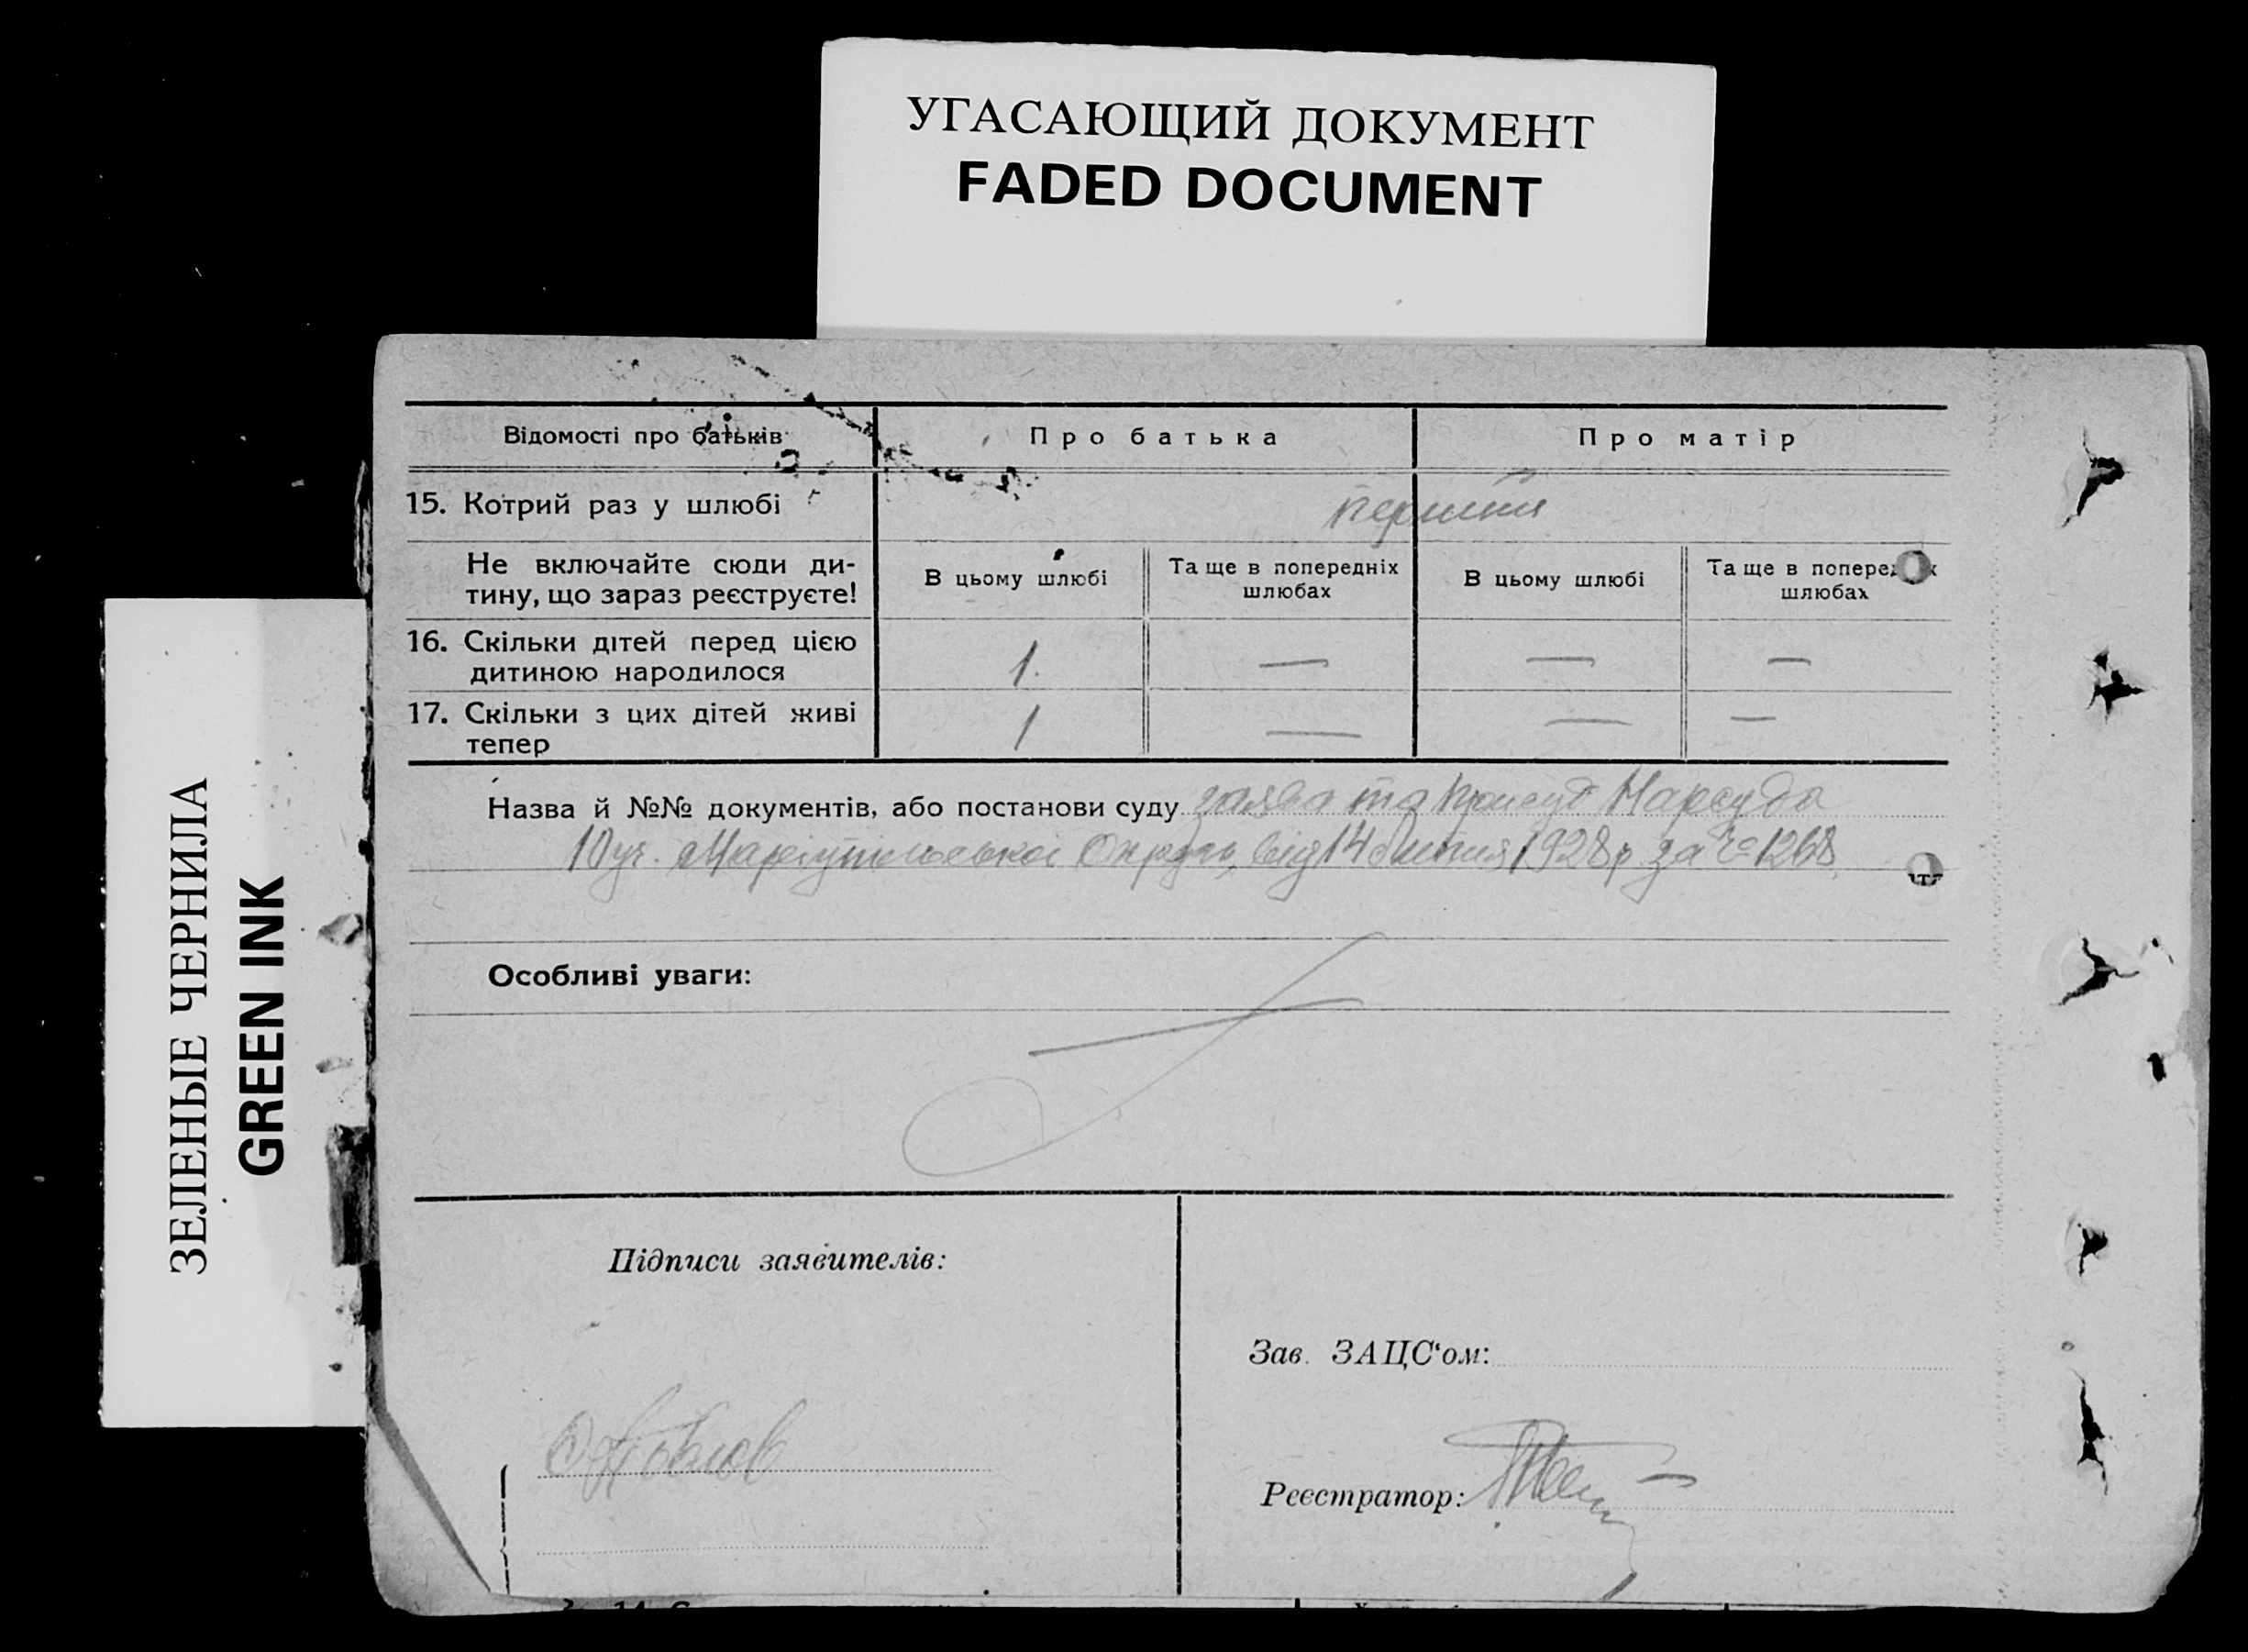 УГАСАЮЩИЙ ДОКУМЕНТ
FADED DOCUMENT
ЗЕЛЕНЫЕ ЧЕРНИЛА
GREEN INK
Відомості про батьків
Про батька
Про матір
15. Котрий раз у шлюбі
перший
Не включайте сюди ди-
тину, що зараз реєструєте!
В цьому шлюбі
Та ще в попередніх
шлюбах
В цьому шлюбі
Та ще в
шлюбах
16. Скільки дітей перед цією
дитиною народилося
1. — — —
17. Скільки з цих дітей живі
тепер
1 — — —
Назва й №№ документів, або постанови суду заява та присуд Нарсуду
10 уч. Маріупільської Округи, від 14 липня 1928 р за № 1268
Особливі уваги:
Підписи заявителів:
Зав. ЗАЦС‘ом:
Реєстратор: